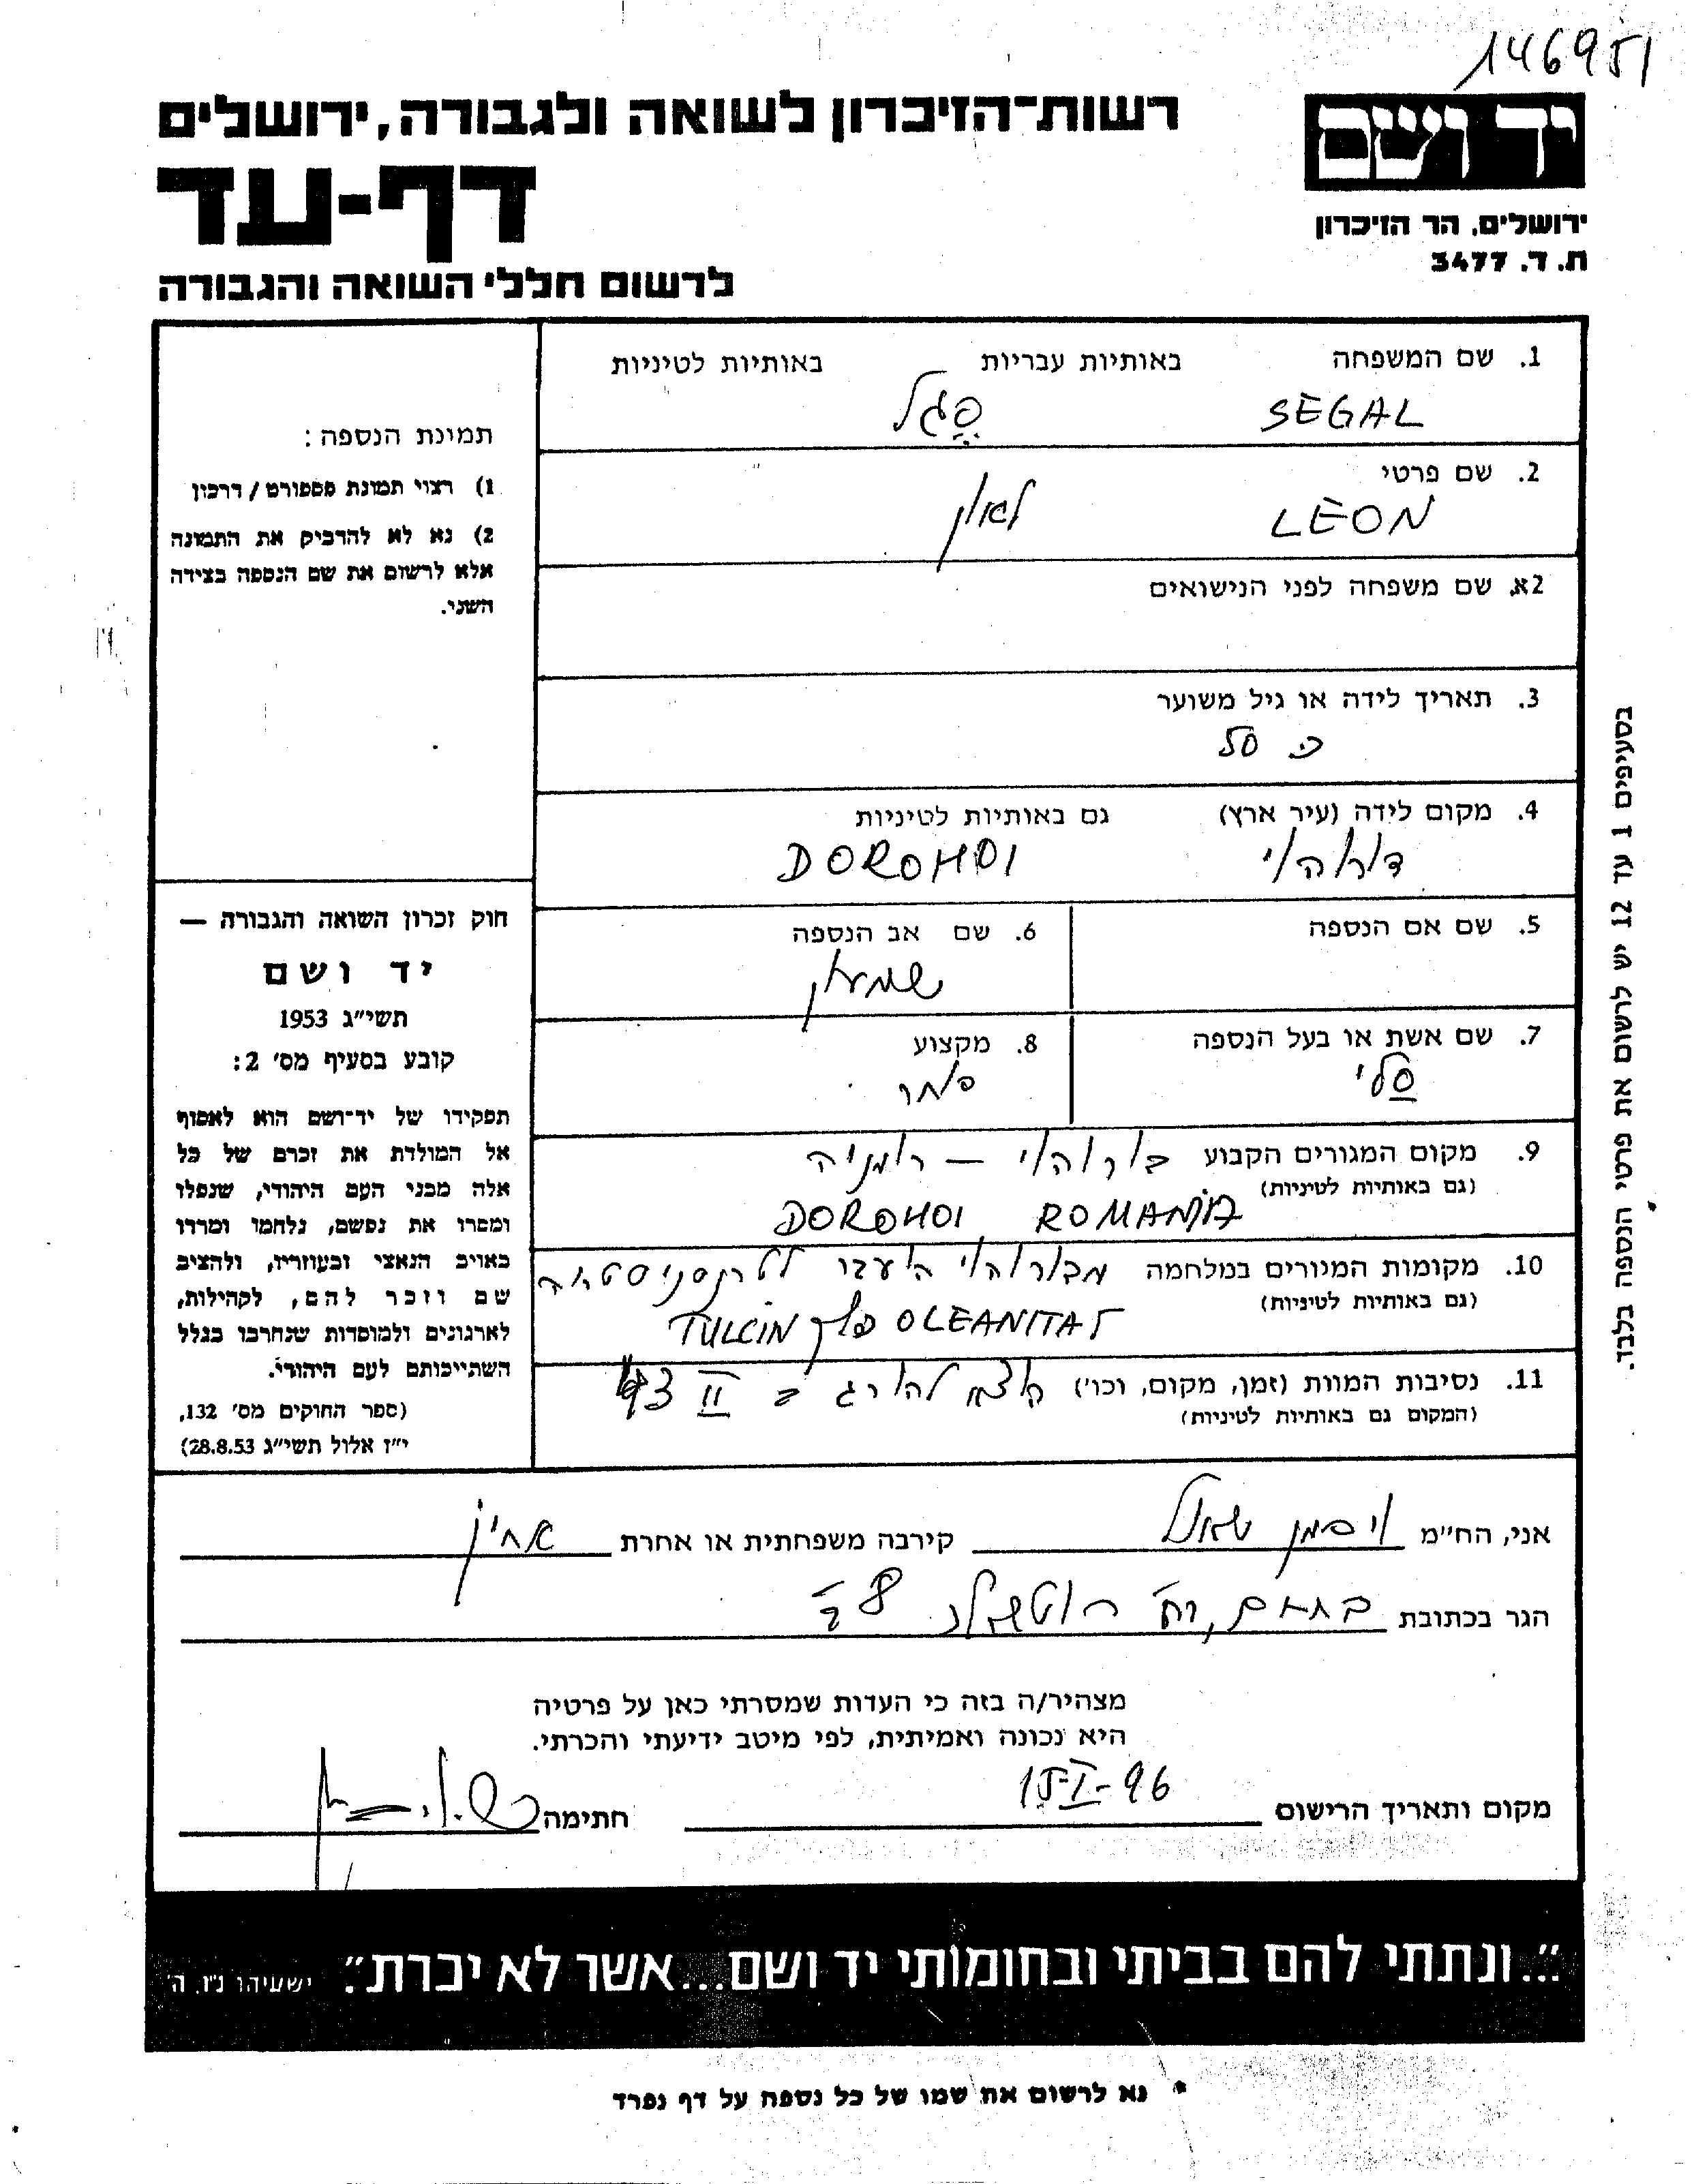 146951
רשות-הזיכרון לשואה ולגבורה, ירושלים
דף-עד
לרשום חללי השואה והגבורה
יד ושם
ירושלים, הר הזיכרון
ת. ד. 3477
1. שם המשפחה באותיות עבריות באותיות לטיניות
SEGAL סגל
2. שם פרטי
LEON לאון
2א. שם משפחה לפני הנישואים
3. תאריך לידה או גיל משוער
4. מקום לידה (עיר ארץ) גם באותיות לטיניות
דורוהוי DOROHOI
5. שם אם הנספה
6. שם אב הנספה
שמעון
7. שם אשת או בעל הנספה
סלי
8. מקצוע
סוחר
9. מקום המגורים הקבוע דורוהוי – רומניה
(גם באותיות לטיניות)
DOROHOI ROMANIA
10. מקומות המגורים במלחמה מדורוהוי הועברו לטרנסניסטריה
(גם באותיות לטיניות)
TULCIN OLEANITAT
11. נסיבות המוות (זמן, מקום, וכו') הוצא להורג ב II 43
(המקום גם באותיות לטיניות)
תמונת הנספה:
1) רצוי תמונת פספורט / דרכון
2) נא לא להדביק את התמונה
אלא לרשום את שם הנספה בצידה
השני.
חוק זכרון השואה והגבורה —
יד ושם
תשי״ג 1953
קובע בסעיף מס' 2:
תפקידו של יד-ושם הוא לאסוף
אל המולדת את זכרם של כל
אלה מבני העם היהודי, שנפלו
ומסרו את נפשם, נלחמו ומרדו
באויב הנאצי ובעוזריו, ולהציב
שם וזכר להם, לקהילות,
לארגונים ולמוסדות שנחרבו בגלל
השתייכותם לעם היהודי.
(ספר החוקים מס' 132,
י״ז אלול תשי״ג 28.8.53)
בסעיפים 1 עד 12 יש לרשום את פרטי הנספה בלבד.
אני, הח״מ ויסמן שאול קירבה משפחתית או אחרת אחיין
הגר בכתובת
מצהיר/ה בזה כי העדות שמסרתי כאן על פרטיה
היא נכונה ואמיתית, לפי מיטב ידיעתי והכרתי.
מקום ותאריך הרישום 15-I-96 חתימה
"...ונתתי להם בביתי ובחומותי יד ושם...אשר לא יכרת". ישעיהו נ״ו, ה'
* נא לרשום את שמו של כל נספה על דף נפרד